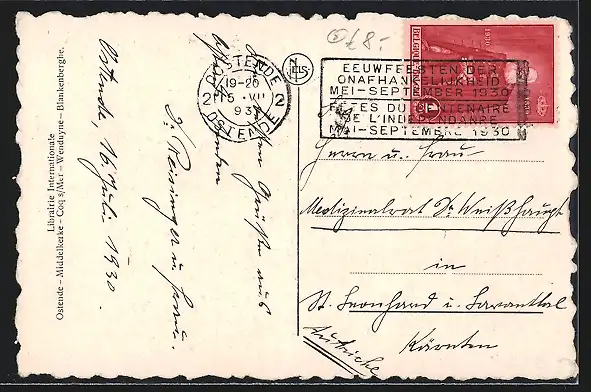 Librairie Internationale
Ostende – Middelkerke – Coq s/Mer – Wenduyne – Blankenberghe.
Ostende, 16. Juli 1930.
Grüßen aus
Dr. Peisinger u. Frau.
OOSTENDE
19-20
2 15 .VII 2
193
OSTENDE
EEUWFEESTEN DER
ONAFHANKELIJKHEID
MEI-SEPTEMBER 1930
FETES DU CENTENAIRE
DE L'INDEPENDANCE
MAI-SEPTEMBRE 1930
1930
Herrn u. Frau
Medizinalrat Dr. Weißhaupt
in
St. Leonhard i. Lavanttal
Kärnten
Autriche